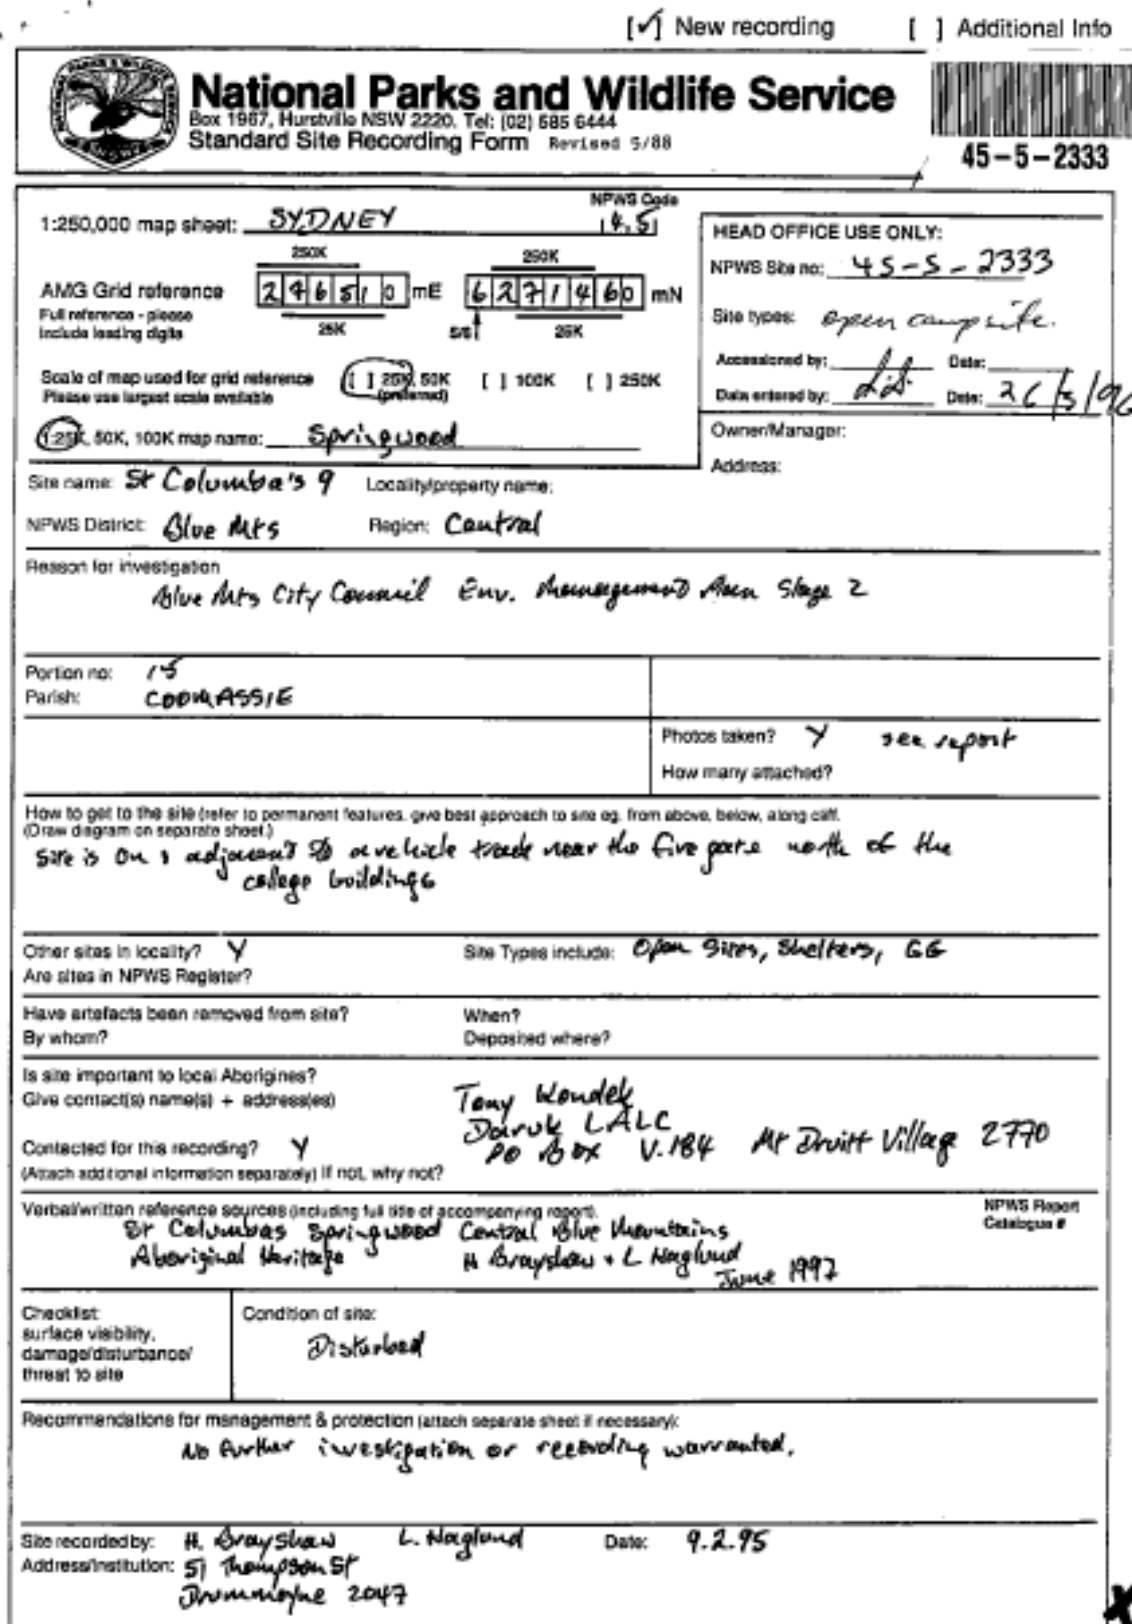 [✓] New recording [ ] Additional Info
National Parks and Wildlife Service
Box 1967, Hurstville NSW 2220. Tel: (02) 585 6444
Standard Site Recording Form Revised 5/88
45-5-2333
NPWS Code
1:250,000 map sheet: SYDNEY
HEAD OFFICE USE ONLY:
250K 250K
NPWS Site no: 45-5-2333
AMG Grid reference mE 6271460 mN
Full reference - please
include leading digits
25K 5/6 25K
Site types: open campsite.
Accessioned by: Date:
Scale of map used for grid reference [ ] 25K, 50K [ ] 100K [ ] 250K
Please use largest scale available (preferred)
Data entered by: Date: 26/5/96
1:25K, 50K, 100K map name: Springwood
Owner/Manager:
Address:
Site name: St Columba's 9 Locality/property name:
NPWS District: Blue Mts Region: Central
Reason for investigation
Blue Mts City Council Env. Management Plan Stage 2
Portion no: 15
Parish: COOMASSIE
Photos taken? Y see report
How many attached?
How to get to the site (refer to permanent features, give best approach to site eg. from above, below, along cliff.
(Draw diagram on separate sheet.)
Site is on & adjacent to a vehicle track near the fire gate north of the
college buildings
Other sites in locality? Y Site Types include: Open Sites, Shelters, GG
Are sites in NPWS Register?
Have artefacts been removed from site? When?
By whom? Deposited where?
Is site important to local Aborigines?
Give contact(s) name(s) + address(es) Tony
Daruk LALC
Contacted for this recording? Y PO Box V.184 Mt Druitt Village 2770
(Attach additional information separately) If not, why not?
Verbal/written reference sources (including full title of accompanying report). NPWS Report
Catalogue #
St Columbas Springwood Central Blue Mountains
Aboriginal Heritage H Brayshaw + L Haglund
June
Checklist: Condition of site:
surface visibility,
damage/disturbance/ Disturbed
threat to site
Recommendations for management & protection (attach separate sheet if necessary):
No further investigation or recording warranted.
Site recorded by: H. Brayshaw L. Haglund Date: 9.2.95
Address/Institution: 51 Thompson St
Drummoyne 2047